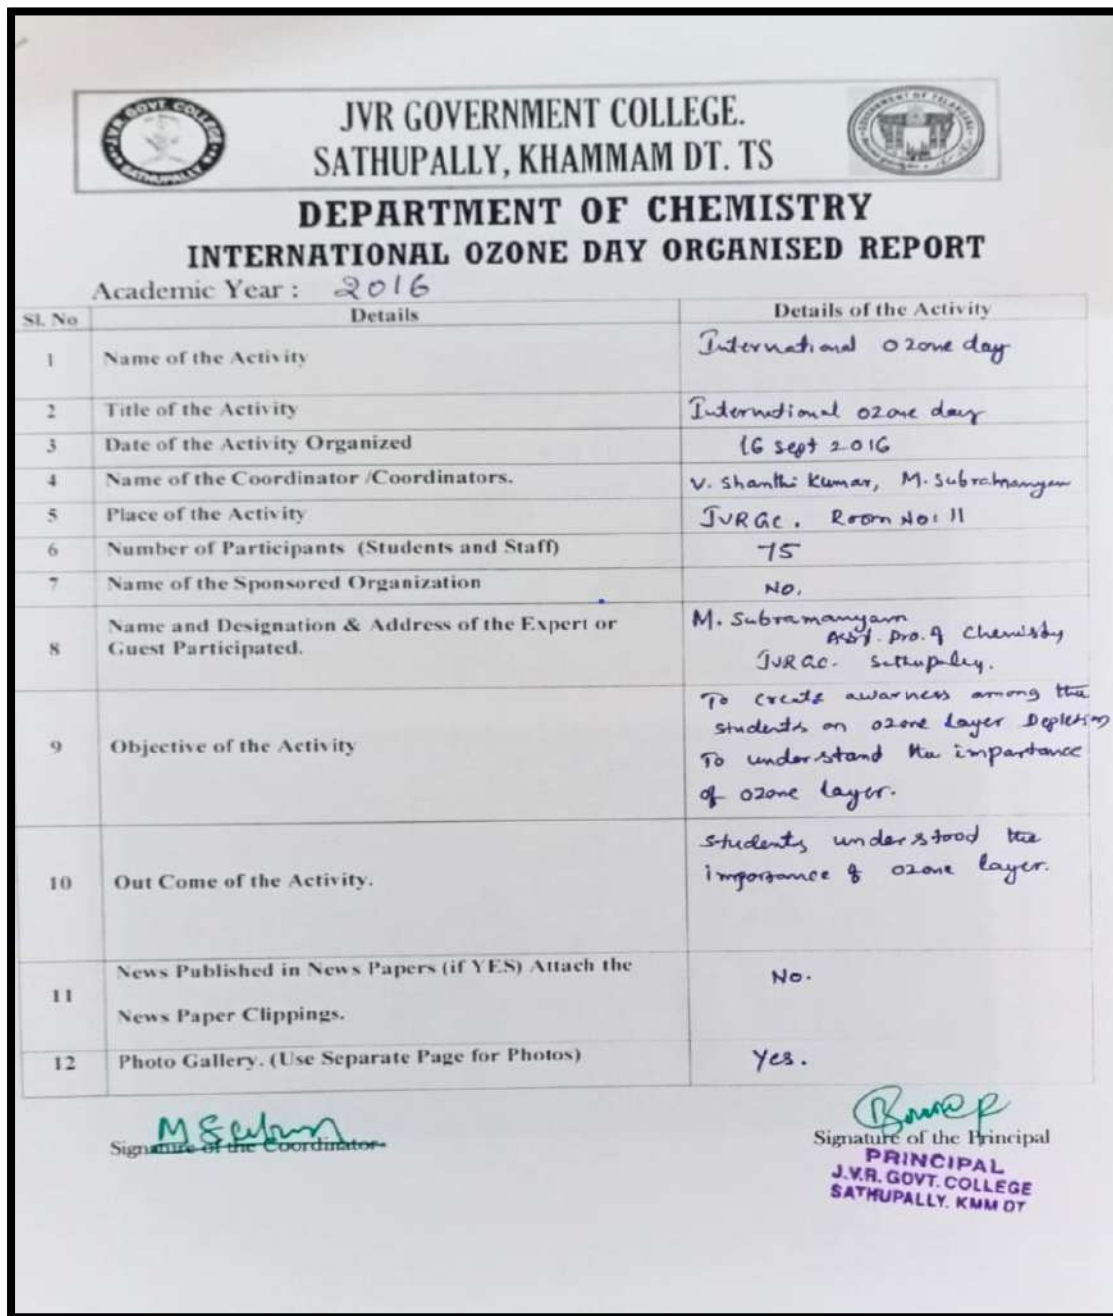 JVR GOVT. COLLEGE
SATHUPALLY
JVR GOVERNMENT COLLEGE.
SATHUPALLY, KHAMMAM DT. TS
GOVERNMENT OF TELANGANA
DEPARTMENT OF CHEMISTRY
INTERNATIONAL OZONE DAY ORGANISED REPORT
Academic Year : 2016
Sl. No Details Details of the Activity
1 Name of the Activity International ozone day
2 Title of the Activity International ozone day
3 Date of the Activity Organized 16 sept 2016
4 Name of the Coordinator /Coordinators. V. Shanthi Kumar, M. Subrahmanyam
5 Place of the Activity JVRGC. Room No: 11
6 Number of Participants (Students and Staff) 75
7 Name of the Sponsored Organization No.
8 Name and Designation & Address of the Expert or
Guest Participated.
M. Subramanyam
Asst. Pro. of Chemistry
JVRGC. Sathupalley.
9 Objective of the Activity
To create awarness among the
students on ozone layer Depletion
To understand the importance
of ozone layer.
10 Out Come of the Activity.
students understood the
importance of ozone layer.
11 News Published in News Papers (if YES) Attach the
News Paper Clippings.
No.
12 Photo Gallery. (Use Separate Page for Photos) Yes.
Signature of the Coordinator
Signature of the Principal
PRINCIPAL
J.V.R. GOVT. COLLEGE
SATHUPALLY. KMM DT